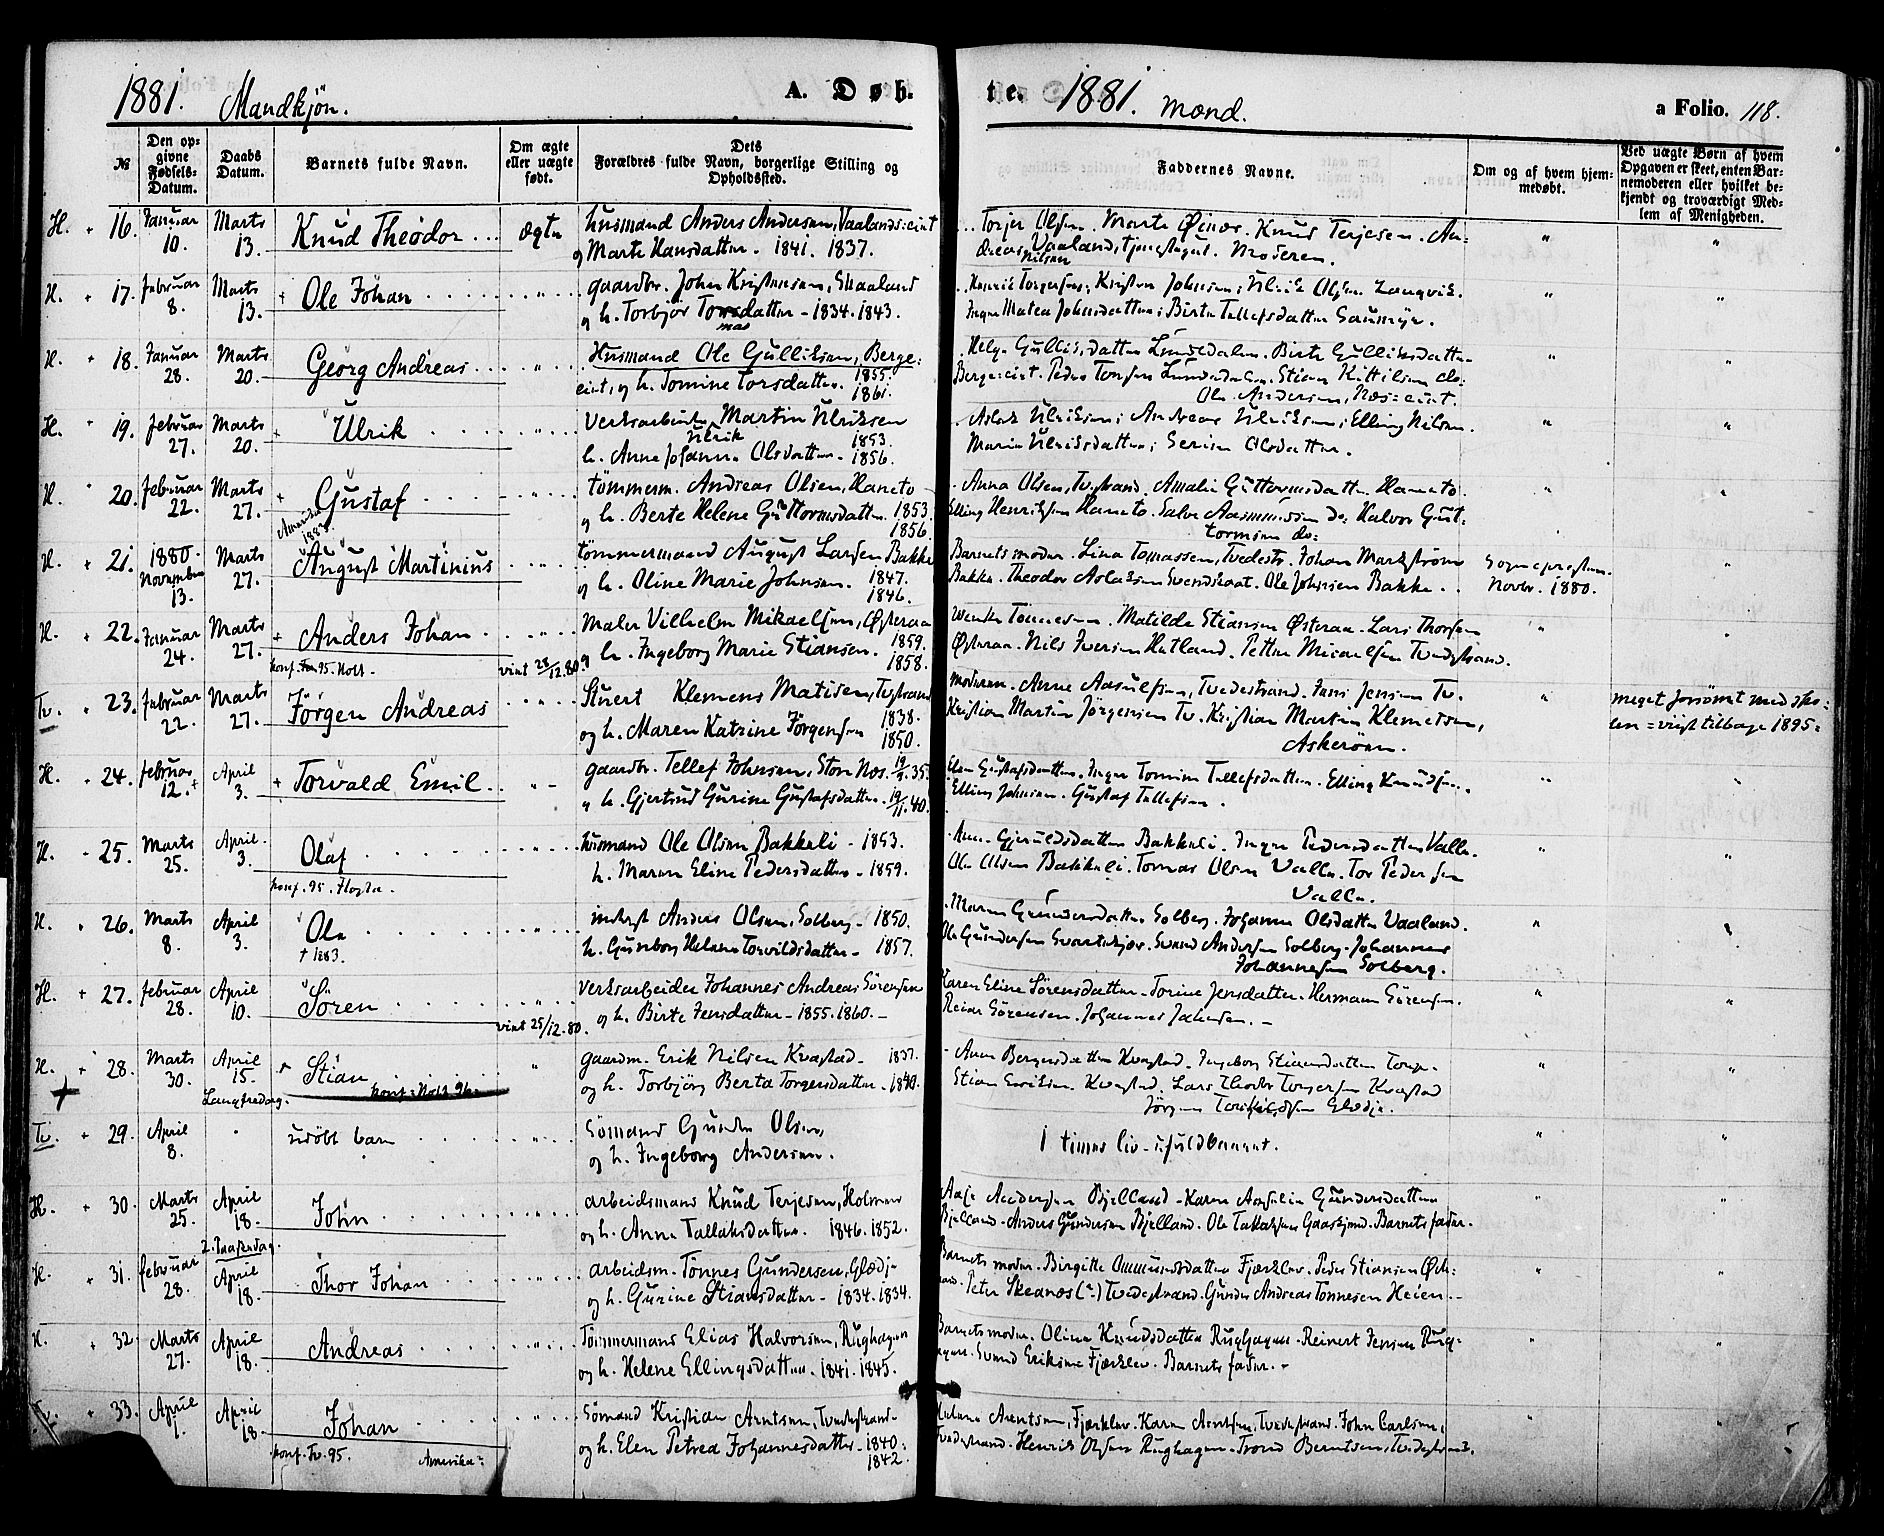 1881. Mandkjön. A. Døb-
№
Den op-
givne
Fødsels-
Datum.
Daabs
Datum.
Barnets fulde Navn.
Om ægte
eller uægte
født.
Dets
Forældres fulde Navn, borgerlige Stilling og
Opholdssted.
H. 16. Januar 10. Marts 13. Knud Theodor ægte
Husmand Anders Andersen, Vaalands:eiet
og Marte Hansdatter. 1841. 1837.
H. 17. Februar 8. Marts 13. + Ole Johan " 
gaardbr. John Kristensen, Skaaland
og h. Torbjør Torsdatter - 1834. 1843.
H. 18. Januar 28. Marts 20. Georg Andreas "
Husmand Ole Gulliksen, Berge:
eiet, og h. Tomine Torsdatter. 1855. 1861.
H. 19. Februar 27. Marts 20. + Ulrik "
Verksarbeider Martin Ulriksen 1853.
h. Anne Johanne Olsdatter - 1856.
H. 20. Februar 22. Marts 27. + Gustaf "
tömmerm. Andreas Olsen, Haneto
og h. Berte Helene Guttormsdatter. 1853. 1856.
Amerika 1883.
H. 21. 1880. November 13. Marts 27. August Martinius "
tömmermand August Larsen Bakke
og h. Oline Marie Johnsen. 1847. 1846.
H. 22. Januar 24. Marts 27. + Anders Johan "
Maler Vilhelm Mikaelsen, Østeraa 1859.
og h. Ingeborg Marie Stiansen. 1858.
konf. 95. Holt. viet 28/12.80.
Tv. 23. Februar 22. Marts 27. Jörgen Andreas "
Stuert Klemens Matisen, Tvestrand 1838.
og h. Maren Katrine Jörgensen 1850.
H. 24. Februar 12. April 3. + Torvald Emil "
gaardbr. Tellef Johnsen, Store Nes. 19/9. 35.
h. Gjertrud Gurine Gustafsdatter. 19/11. 40.
H. 25. Marts 25. April 3. Olaf "
husmand Ole Olsen Bakkeli - 1853.
h. Maren Eline Pedersdatter - 1859.
konf. 95. Flosta.
H. 26. Marts 8. April 3. Ole "
† 1883.
inderst Anders Olsen, Solberg - 1850.
h. Gunborg Helene Torvildsdatter - 1857.
H. 27. Februar 28. April 10. Sören "
Verksarbeider Johannes Andreas Sörensen
og h. Birte Jensdatter - 1855. 1860. -
viet 25/12.80.
H. 28. Marts 30. April 15. Langfredag. Stian "
konf. Holt 96.
gaardm. Erik Nilsen Kvastad - 1837.
og h. Torbjörg Berta Torgersdatter - 1840.
Tv. 29. April 8. udöbt barn "
Sömand Gunder Olsen,
og h. Ingeborg Andersen.
H. 30. Marts 25. April 18. 2. Paaskedag. John "
arbeidsmand Knud Terjesen, Holmen
og h. Anne Tallaksdatter. 1846. 1852.
H. 31. Februar 28. April 18. Thor Johan "
arbeidsm. Tönnes Gundersen, Glødje
og h. Gurine Stiansdatter - 1834. 1834.
H. 32. Marts 27. April 18. Andreas "
Tömmermand Elias Halvorsen, Rughagen
og h. Helene Ellingsdatter. 1841. 1845.
33. April 1. April 18. Johan "
Sömand Kristian Arntsen, Tvedestrand -
og h. Elen Petrea Johannesdatter - 1840. 1842.
konf. Tv. 95. Amerika
te. 1881. Mænd. a Folio. 118.
Faddernes Navne.
Om og af hvem hjem-
medøbt.
Ved uægte Børn af hvem
Opgaven er skeet, enten Bar-
nemoderen eller hvilket be-
kjendt og troværdigt Med-
lem af Menigheden.
Torjer Olsen. Marte Øines. Knud Terjesen. An-
dreas Nilsen Vaaland, tjenestegut. Moderen.
Henrik Torgersen; Kristen Johnsen; Ulrik Olsen Langvik.
Inger Matea Johnsdatter; Birte Tellefsdatter Saumyr.
Helge Gulliksdatter Lunsedalen. Birte Gulliksdatter
Berge:eiet. Peder Torsen Lunsedalen. Stian Kittilsen do:
Ole Andersen, Næs:eiet.
Aslak Ulriksen; Andreas Ulriksen; Elling Nilsen.
Maria Ulriksdatter; Serine Olsdatter.
Anna Olsen, Tvestrand. Amalie Guttormsdatter Haneto.
Elling Henriksen Haneto. Salve Aasmundsen do: Halvor Gut-
tormsen do:
Barnets moder. Lina Tomassen, Tvedestr. Johan Markström
Bakke. Theodor Aslaksen Svendskaat. Ole Johnsen Bakke.
Sognepresten. Novbr. 1880.
Wenke Tönnesen. Matilde Stiansen Østeraa. Lars Thorsen
Østeraa. Nils Iversen Hetland. Petter Micaelsen Tvedestrand.
Moderen. Anne Aasulfsen, Tvedestrand. Jens Jensen Tv.
Kristian Martin Jörgensen Tv. Kristian Martin Klemetsen,
Askeröen.
meget forsömt med sko-
len = vist tilbage 1895=
Elen Gustafsdatter. Inger Tomine Tellefsdatter. Elling Knudsen.
Elling Johnsen. Gustaf Tellefsen.
Anne Gjeruldsdatter Bakkeli. Inger Pedersdatter Valle.
Ole Olsen Bakkeli. Tomas Olsen Valle. Tor Pedersen
Valle.
Maren Gundersdatter Solberg. Johanne Olsdatter Vaaland.
Ole Gundersen Svartekjær. Svend Andersen Solberg. Johannes
Johannesen Solberg.
Karen Eline Sörensdatter. Torine Jensdatter. Hermann Sörensen.
Reier Sörensen. Johannes Jakobsen. -
Anne Bergersdatter Kvastad. Ingeborg Stiansdatter
Stian Eriksen Kvastad. Lars Theodor Torgersen Kvastad
Jörgen Torkildsen Glødje.
1 times liv - ufuldbaaret.
Aase Andersen Bjelland. Karen Angelia Gundersdatter
Bjelland. Anders Gundersen Bjelland. Ole Tallaksen Gaaskjend. Barnets fader.
Barnets moder. Birgitte Ommundsdatter Fjærkleiv. Peder Stiansen
Peter Skeanæs Tvedestrand. Gunder Andreas Tönnesen Heien. -
Barnets moder. Oline Knudsdatter Rughagen. Reinert Jensen Rug-
hagen. Svend Eriksen Fjærkleiv. Barnets fader. -
Helene Arntsen, Fjærkleiv. Karen Arntsen, Tvedestrand. John Carlsen,
Tvedestrand. Henrik Olsen Rughagen. Trond Berntsen, Tvedestrand.